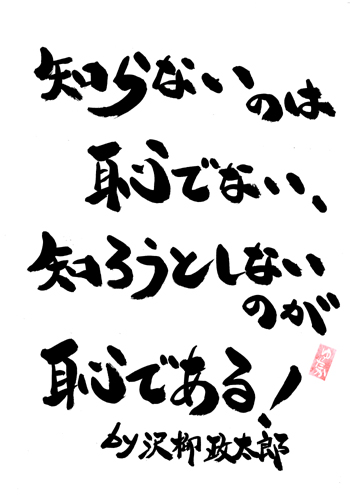 知らないのは
恥でない、
知ろうとしない
のが
恥である!
by沢柳政太郎